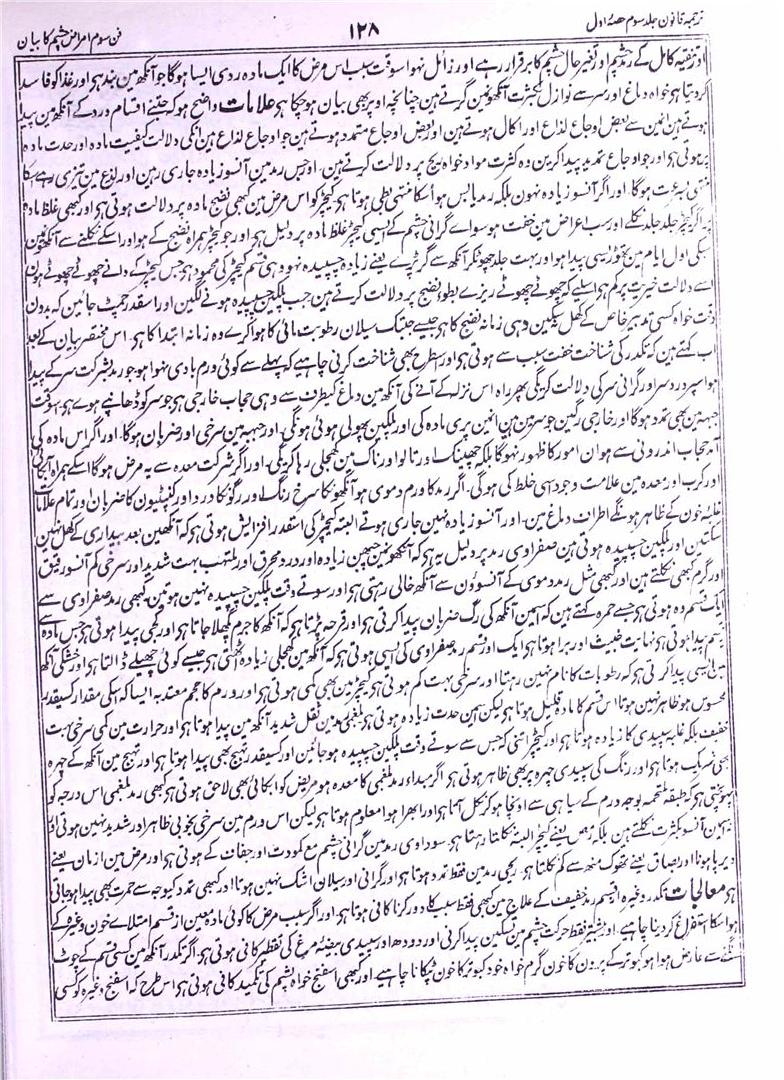 ترجمہ قانون جلد سوم حصۂ اول
۱۲۸
فن سوم امراض چشم کا بیان
اور تنقیہ کامل کے رمد چشم اور تغیر حال چشم کا برقرار رہے اور زائل نہوا سوقت سبب اس مرض کا ایک مادہ ردی ایسا ہوگا جو آنکھ مین بند ہو اور غذا کو فاسد
کردیتا ہو خواہ دماغ اور سر سے نوازل بکثرت آنکھونمین گرتے ہین چنانچہ اوپر بھی بیان ہو چکا ہو علامات واضح ہو کہ جتنے اقسام درد کے آنکھ مین پیدا
ہوتے ہین انمین سے بعض اوجاع لذاع اور اکال ہوتے ہین اور بعض اوجاع متمدد ہوتے ہین جو اوجاع لذاع ہین انکی دلالت کیفیت مادہ اور حدت مادہ
پر ہوتی ہو اور جو اوجاع تمدید پیدا کرین وہ کثرت مواد خواہ ریح پر دلالت کرتے ہین۔ اور جس رمد مین آنسو زیادہ جاری رہین اور لذع مین تیزی رہے اسکا
منتہی بسرعت ہوگا۔ اور اگر آنسو زیادہ نہون بلکہ رمد یابس ہو اُسکا منتہی بطی ہوتا ہو۔ کیچڑ کو اس مرض مین کبھی نضج مادہ پر دلالت ہوتی ہو اور کبھی غلظ مادہ
پر اگر کیچڑ جلد جلد نکلے اور سب اعراض مین خفت ہو سوا گرانی چشم کے ایسی کیچڑ غلظ مادہ پر دلیل ہو اور جو کیچڑ ہمراہ نضج کے ہو اور اسکے نکلنے سے آنکھونمین
سبکی اول ایام مین تھوڑی سی پیدا ہو اور بہت جلد چھوٹکر آنکھ سے گر پڑے یعنے زیادہ چسپیدہ نہو وہی قسم کیچڑ کی محمود ہو جس کیچڑ کے دانے چھوٹے چھوٹے ہون
اسے دلالت خیریت پر کم ہو اسلیے کہ چھوٹے چھوٹے ریزے بطوء نضج پر دلالت کرتے ہین جب پلکین چسپیدہ ہونے لگین اور اسقدر چمٹ جائین کہ بدون
دقت خواہ کسی تدبیر خاص کے کھل نسکین وہی زمانہ نضج کا ہو جیسے جبتک سیلان رطوبت مائی کا ہوا کرے وہ زمانہ ابتدا کا ہو۔ اس مختصر بیان کے بعد
اب کہتے ہین کہ تکدر کی شناخت خفت سبب سے ہوتی ہو اور اسطرح بھی شناخت کرنی چاہیے کہ پہلے سے کوئی ورم بادی نہوا ہو جو رمد بشرکت سر کے پیدا
ہوا سپر درد سر اور گرانی سر کی دلالت کریگی پھر راہ اس نزلہ کے آنے کی آنکھ مین دماغ کیطرف سے وہی حجاب خارجی ہو جو سر کو ڈھانپے ہوے ہو اسوقت
جبہہ مین بھی تمدد ہوگا اور خارجی رگین جو سر مین ہین انمین پری مادہ کی اور پلکین پھولی ہوئی ہونگی۔ اور جبہہ مین سرخی اور ضربان ہوگا۔ اور اگر اس مادہ کی
آمد حجاب اندرونی سے ہو ان امور کا ظہور نہوگا بلکہ چھینک اور تالو اور ناک مین کھجلی رہا کریگی۔ اور اگر بشرکت معدہ سے یہ مرض ہوگا اسکے ہمراہ ابکائی
اور کرب اور معدہ مین علامت وجود اسی خلط کی ہوگی۔ اگر رمد کا ورم دموی ہو آنکھونکا سرخ رنگ اور رگونکا درد اور کنپٹیون کا ضربان اور تمام علامات
غلبۂ خون کے ظاہر ہونگے اطراف دماغ مین۔ اور آنسو زیادہ نہین جاری ہوتے البتہ کیچڑ کی اسقدر افزایش ہوتی ہو کہ آنکھین بعد بیداری کے کھل نہین
سکتین اور پلکین چسپیدہ ہوتی ہین صفراوی رمد پر دلیل یہ ہو کہ آنکھونمین چبھن زیادہ اور درد محرق اور ملتہب بہت شدید اور سرخی کم آنسو رقیق
اور گرم کبھی نکلتے ہین اور کبھی مثل رمد دموی کے آنسوؤن سے آنکھ خالی رہتی ہو اور سوتے وقت پلکین چسپیدہ نہین ہوتین۔ کبھی رمد صفراوی سے
ایک قسم وہ ہوتی ہو جسے حمرہ کہتے ہین کہ اسمین آنکھ کی رگ ضربان پیدا کرتی ہو اور قرحہ پڑتا ہو کہ آنکھ کا جرم گھلا جاتا ہو اور کجی پیدا ہوتی ہو جس مادہ سے
یہ قسم پیدا ہوتی ہو نہایت خبیث اور برا ہوتا ہو ایک اور قسم رمد صفراوی کی ایسی ہوتی ہو کہ آنکھ مین کھجلی زیادہ اٹھتی ہو جیسے کوئی چھیلے ڈالتا ہو اور خشکی آنکھ
مین ایسی پیدا کرتی ہو کہ رطوبات کا نام نہین رہتا اور سرخی بہت کم ہوتی ہو کیچڑ مین بھی کمی ہوتی ہو اور ورم کا حجم معتدبہ ایسا کہ اسکی مقدار کسیقدر
محسوس ہو ظاہر نہین ہوتا اس قسم کا مادہ قلیل ہوتا ہو لیکن اسمین حدت زیادہ ہوتی ہو بلغمی رمد مین ثقل شدید آنکھ مین پیدا ہوتا ہو اور حرارت مین کمی سرخی بہت
خفیف بلکہ غلبہ سپیدی کا زیادہ ہوتا ہو اور کیچڑ اتنی کہ جس سے سوتے وقت پلکین چسپیدہ ہو جائین اور کسیقدر تہیج بھی پیدا ہوتا ہو اور تہیج مین آنکھ کے چہرہ
بھی شریک ہوتا ہو اور رنگ کی سپیدی چہرہ پر بھی ظاہر ہوتی ہو اگر مبدا رمد بلغمی کا معدہ ہو مریض کو ابکائی بھی لاحق ہوتی ہو کبھی رمد بلغمی اس درجہ کو
پہونچتی ہو کہ طبقہ ملتحمہ بوجہ ورم کے سیاہی سے اونچا ہو کر نکل آتا ہو اور ابھرا ہوا معلوم ہوتا ہو لیکن اس ورم مین سرخی بخوبی ظاہر اور شدید نہین ہوتی اور
نہ اسمین آنسو بکثرت نکلتے ہین بلکہ رمص یعنے کیچڑ البتہ نکلتا رہتا ہو۔ سوداوی رمد مین گرانی چشم مع کمودت اور جفاف کے ہوتی ہو اور مرض مین ازمان یعنے
دیرپا ہونا اور بصاق یعنے تھوک منھ سے کم نکلتا ہو۔ ریحی رمد مین فقط تمدد ہوتا ہو اور گرانی اور سیلان اشک نہین ہوتا اور کبھی تمدد کیوجہ سے حمرت بھی پیدا ہو جاتی
ہو معالجات تکدر وغیرہ اقسام رمد خفیف کے علاج مین کبھی فقط سبب کا دور کرنا کافی ہوتا ہو اور اگر سبب مرض کا کوئی مادہ معین از قسم امتلاے خون وغیرہ کے
ہو اسکا استفراغ کردینا چاہیے۔ اور بیشتر فقط حرکت چشم مین تسکین پیدا کرنی اور دودھ اور سپیدی بیضۂ مرغ کی تقطیر کافی ہوتی ہو اگر تکدر آنکھ مین کسی قسم کے چوٹ
لگنے سے عارض ہوا ہو کبوتر کے پرون کا خون گرم خواہ خود کبوتر کا خون ٹپکانا چاہیے۔ اور کبھی اسفنج خواہ پشم کی تکمید کافی ہوتی ہو اس طرح کہ اسفنج وغیرہ کو کسی